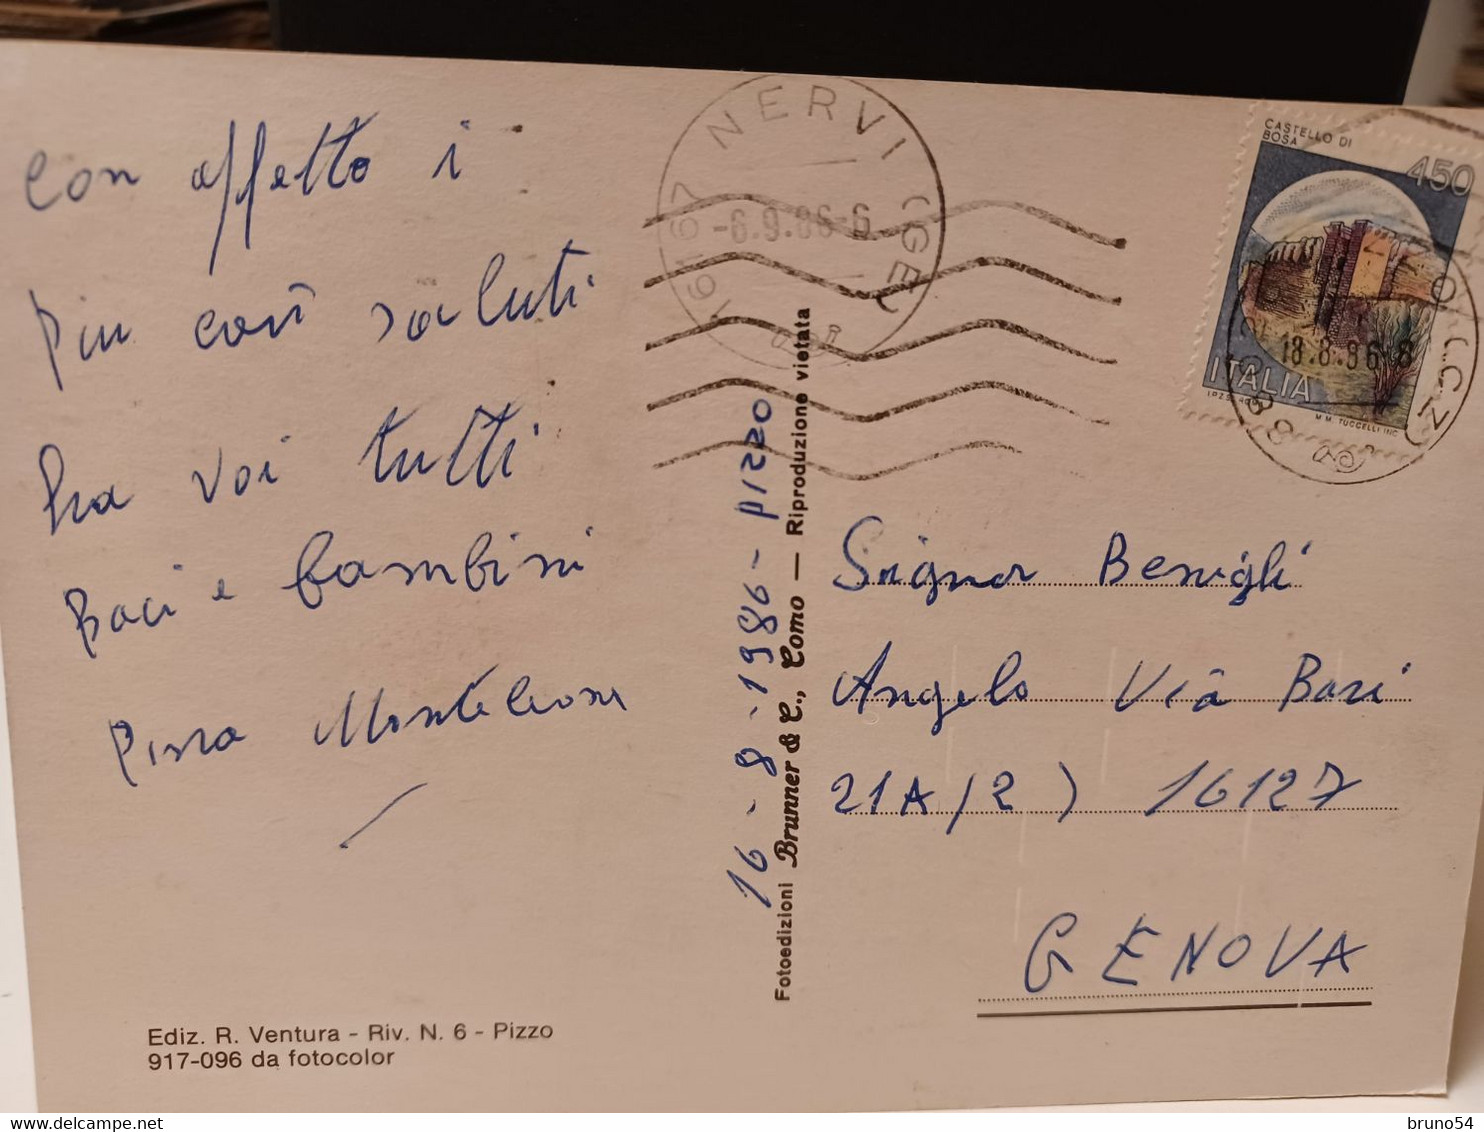 con affetto i
piu cari saluti
ha voi tutti
Baci e bambini
Pizzo
Ediz. R. Ventura - Riv. N. 6 - Pizzo
917-096 da fotocolor
16 - 8 - 1986 - PIZZO
Fotoedizioni Brunner & C., Como — Riproduzione vietata
NERVI (GE)
16167
-6.9.86-6
CASTELLO DI
BOSA
450
ITALIA
I.P.Z.S. ROMA
M.M. TUCCELLI INC.
18.8.86.8
Signor Benigli
Angelo Via Bari
21A/2) 16127
GENOVA
bruno54